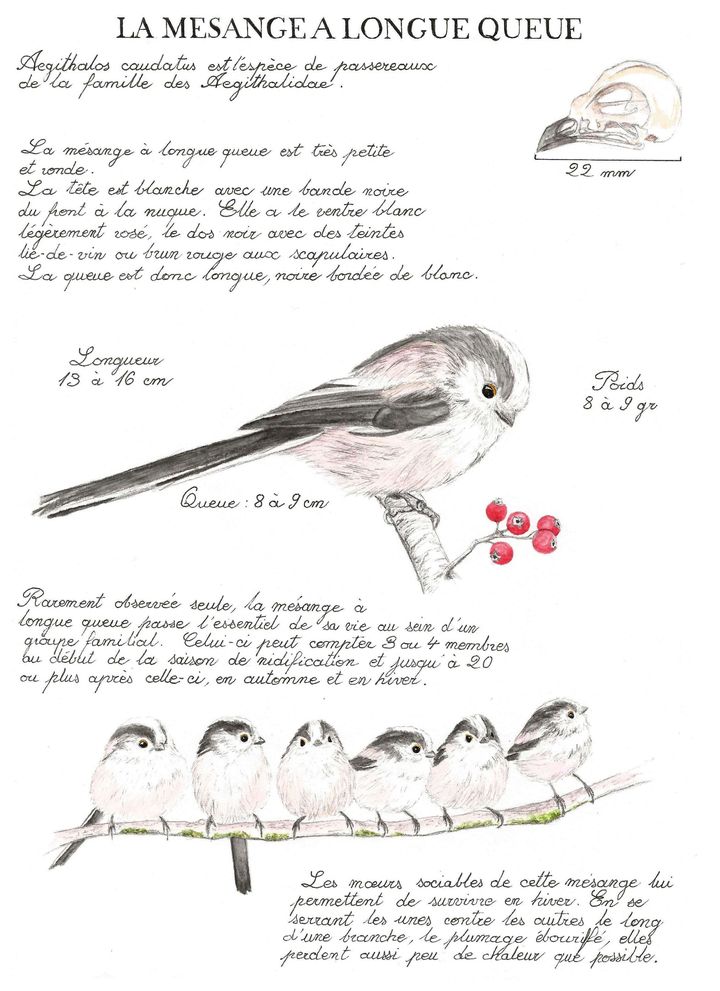 LA MESANGE A LONGUE QUEUE
Aegithalos caudatus est l'espèce de passereaux
de la famille des Aegithalidae.
22 mm
La mésange à longue queue est très petite
et ronde.
La tête est blanche avec une bande noire
du front à la nuque. Elle a le ventre blanc
légèrement rosé, le dos noir avec des teintes
lie-de-vin ou brun rouge aux scapulaires.
La queue est donc longue, noire bordée de blanc.
Longueur
13 à 16 cm
Poids
8 à 9 gr
Queue : 8 à 9 cm
Rarement observée seule, la mésange à
longue queue passe l'essentiel de sa vie au sein d'un
groupe familial. Celui-ci peut compter 3 ou 4 membres
au début de la saison de nidification et jusqu'à 20
ou plus après celle-ci, en automne et en hiver.
Les mœurs sociables de cette mésange lui
permettent de survivre en hiver. En se
serrant les unes contre les autres le long
d'une branche, le plumage ébouriffé, elles
perdent aussi peu de chaleur que possible.